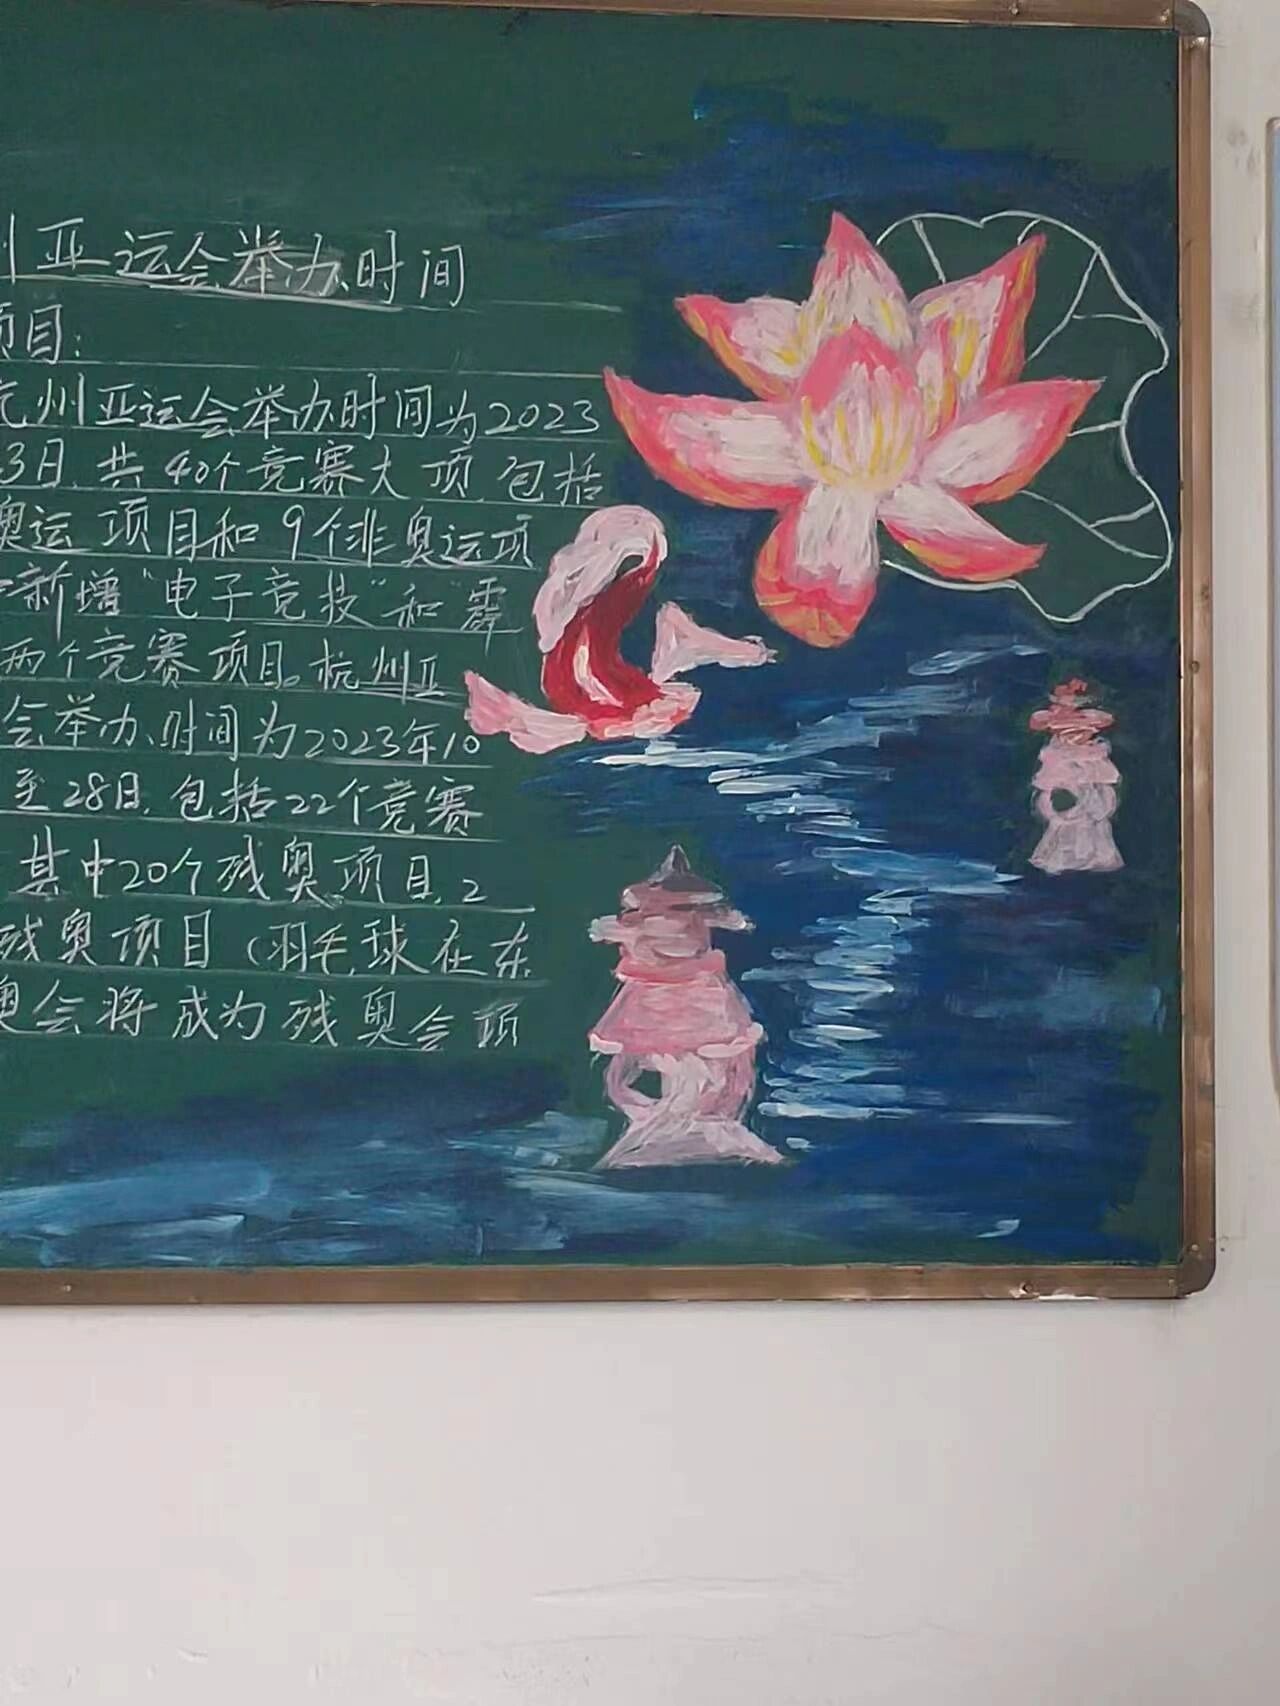 州亚运会举办时间
项目:
杭州亚运会举办时间为2023
3日,共40个竞赛大项,包括
奥运项目和9个非奥运项
新增“电子竞技”和“霹
两个竞赛项目。杭州亚
会举办时间为2023年10
至28日,包括22个竞赛
其中20个残奥项目,2
残奥项目(羽毛球在东
奥会将成为残奥会项